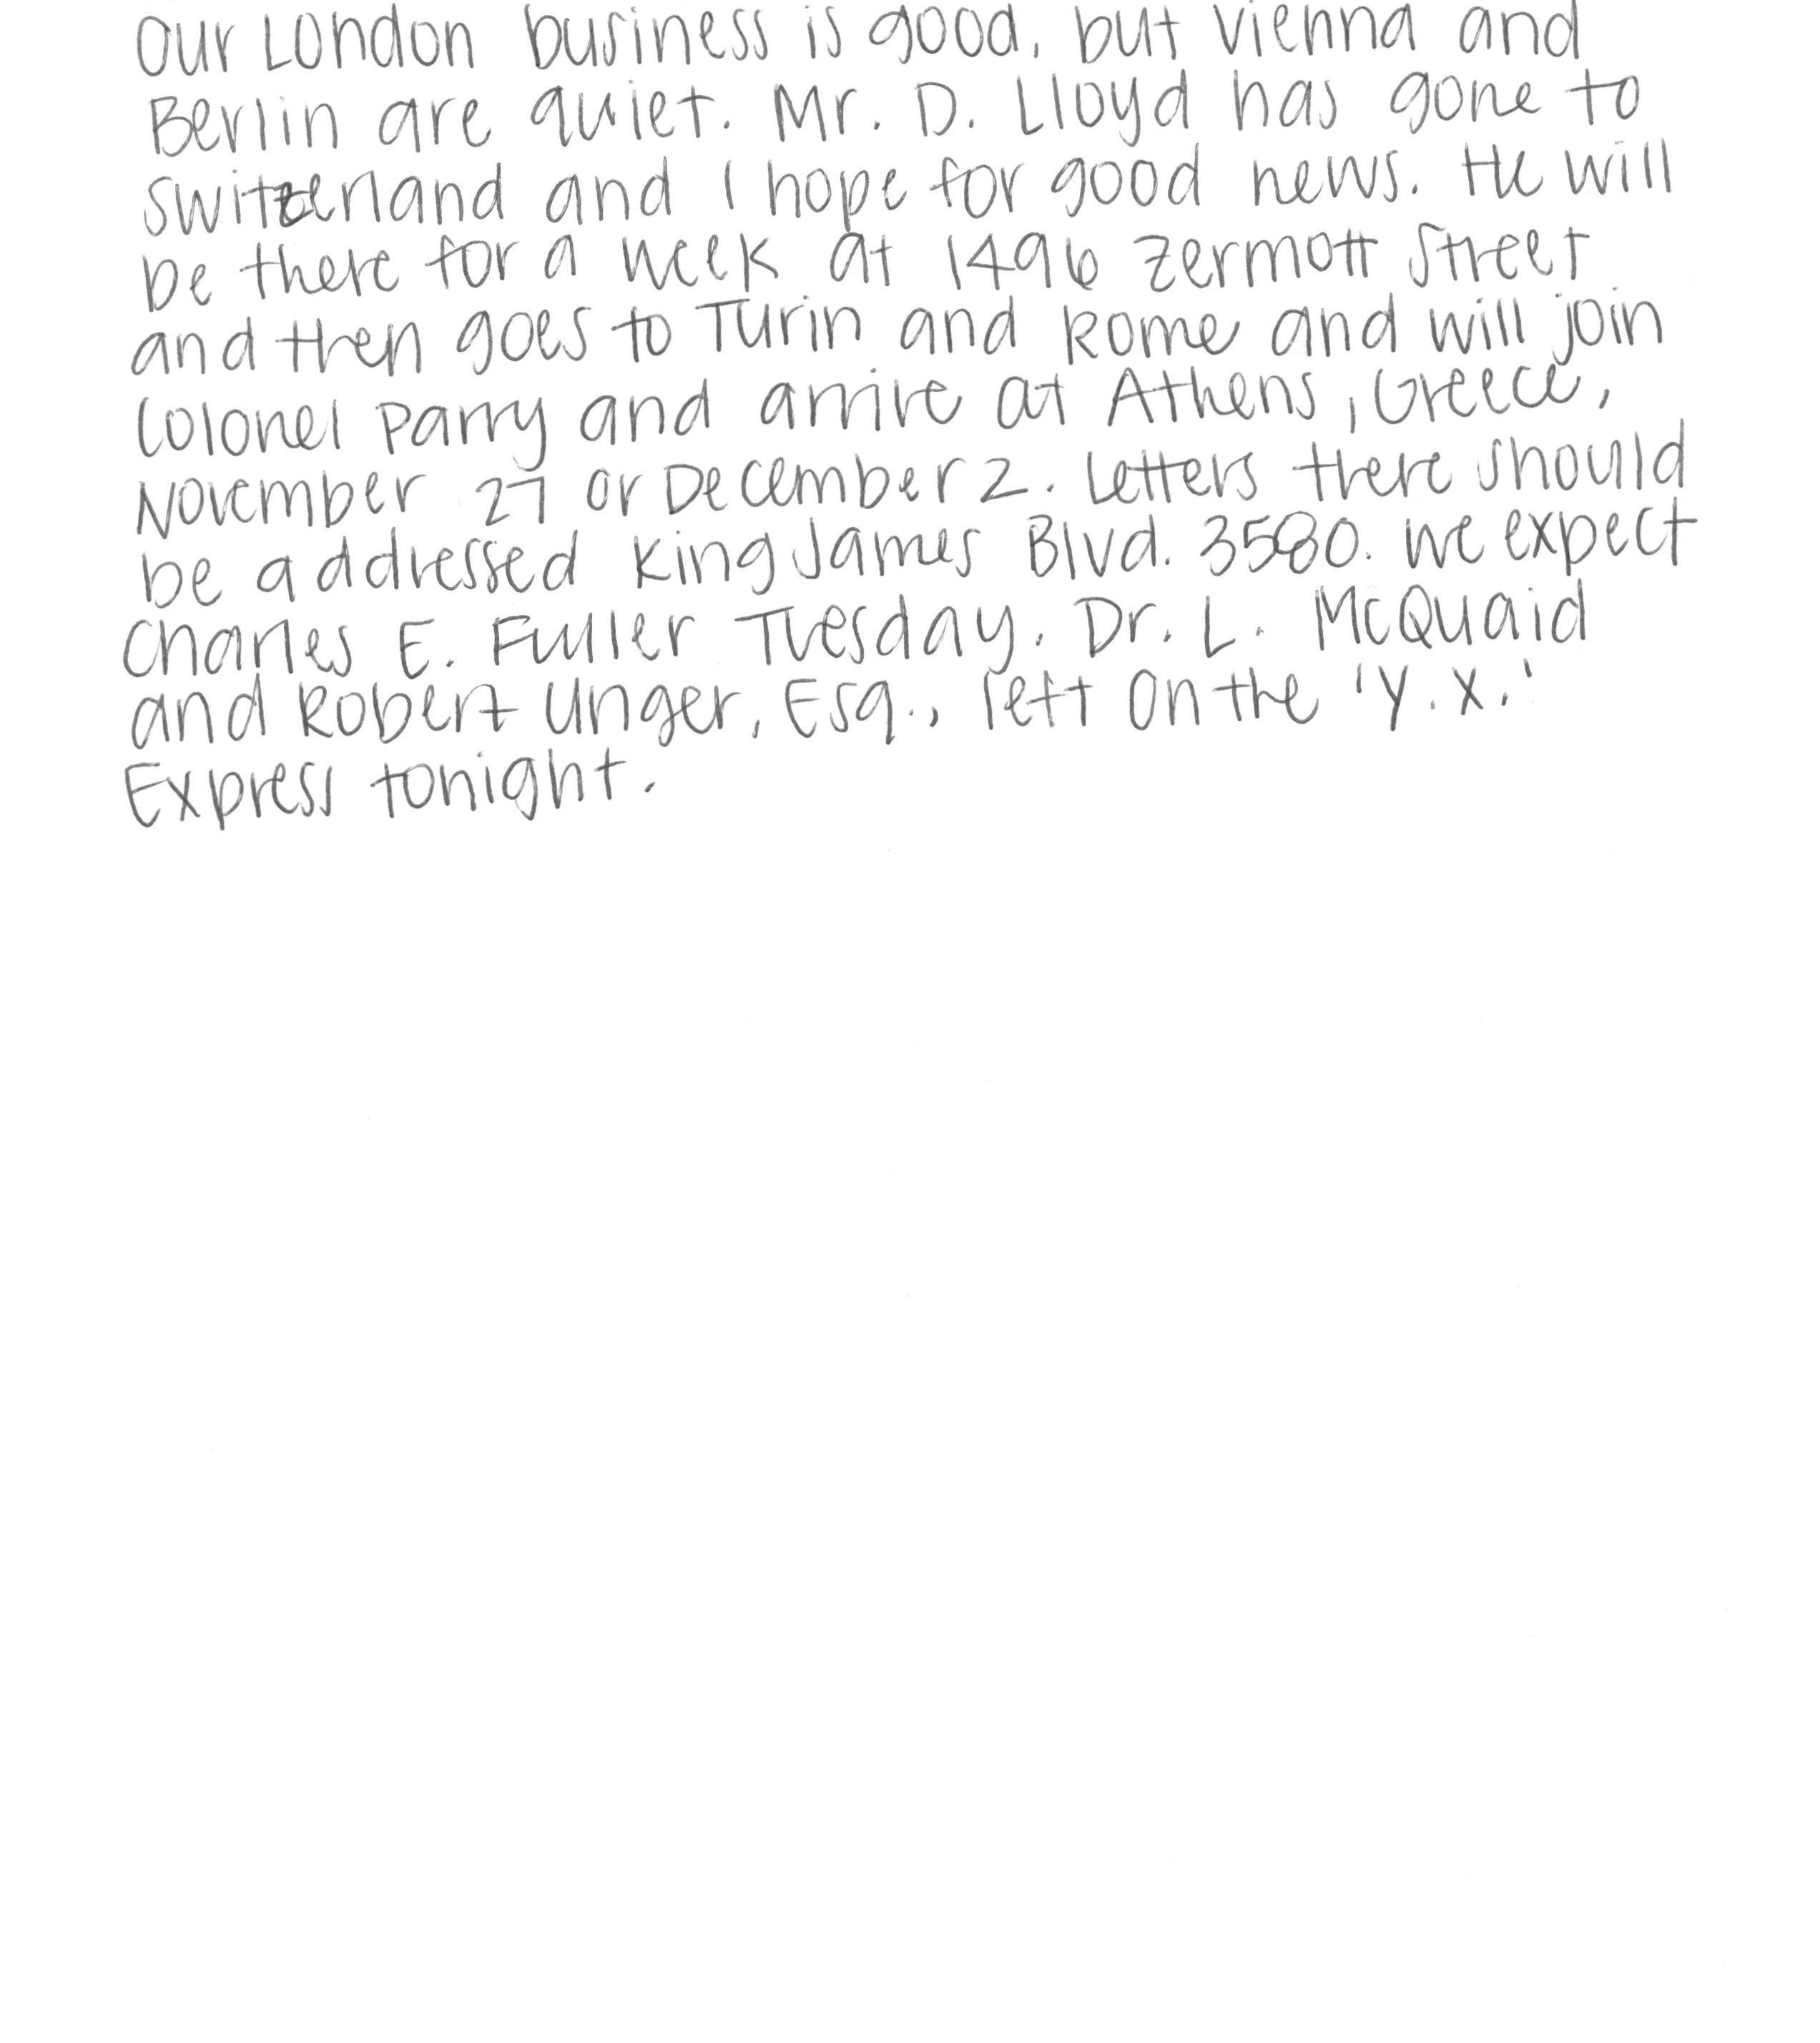 Our London business is good, but Vienna and
Berlin are quiet. Mr. D. Lloyd has gone to
Switzerland and I hope for good news. He will
be there for a week at 1496 Zermott Street
and then goes to Turin and Rome and will join
Colonel Parry and arrive at Athens, Greece,
November 27 or December 2. Letters there should
be addressed King James Blvd. 3580. We expect
Charles E. Fuller Tuesday. Dr. L. McQuaid
and Robert Unger, Esq., left on the 'Y.X.'
Express tonight.